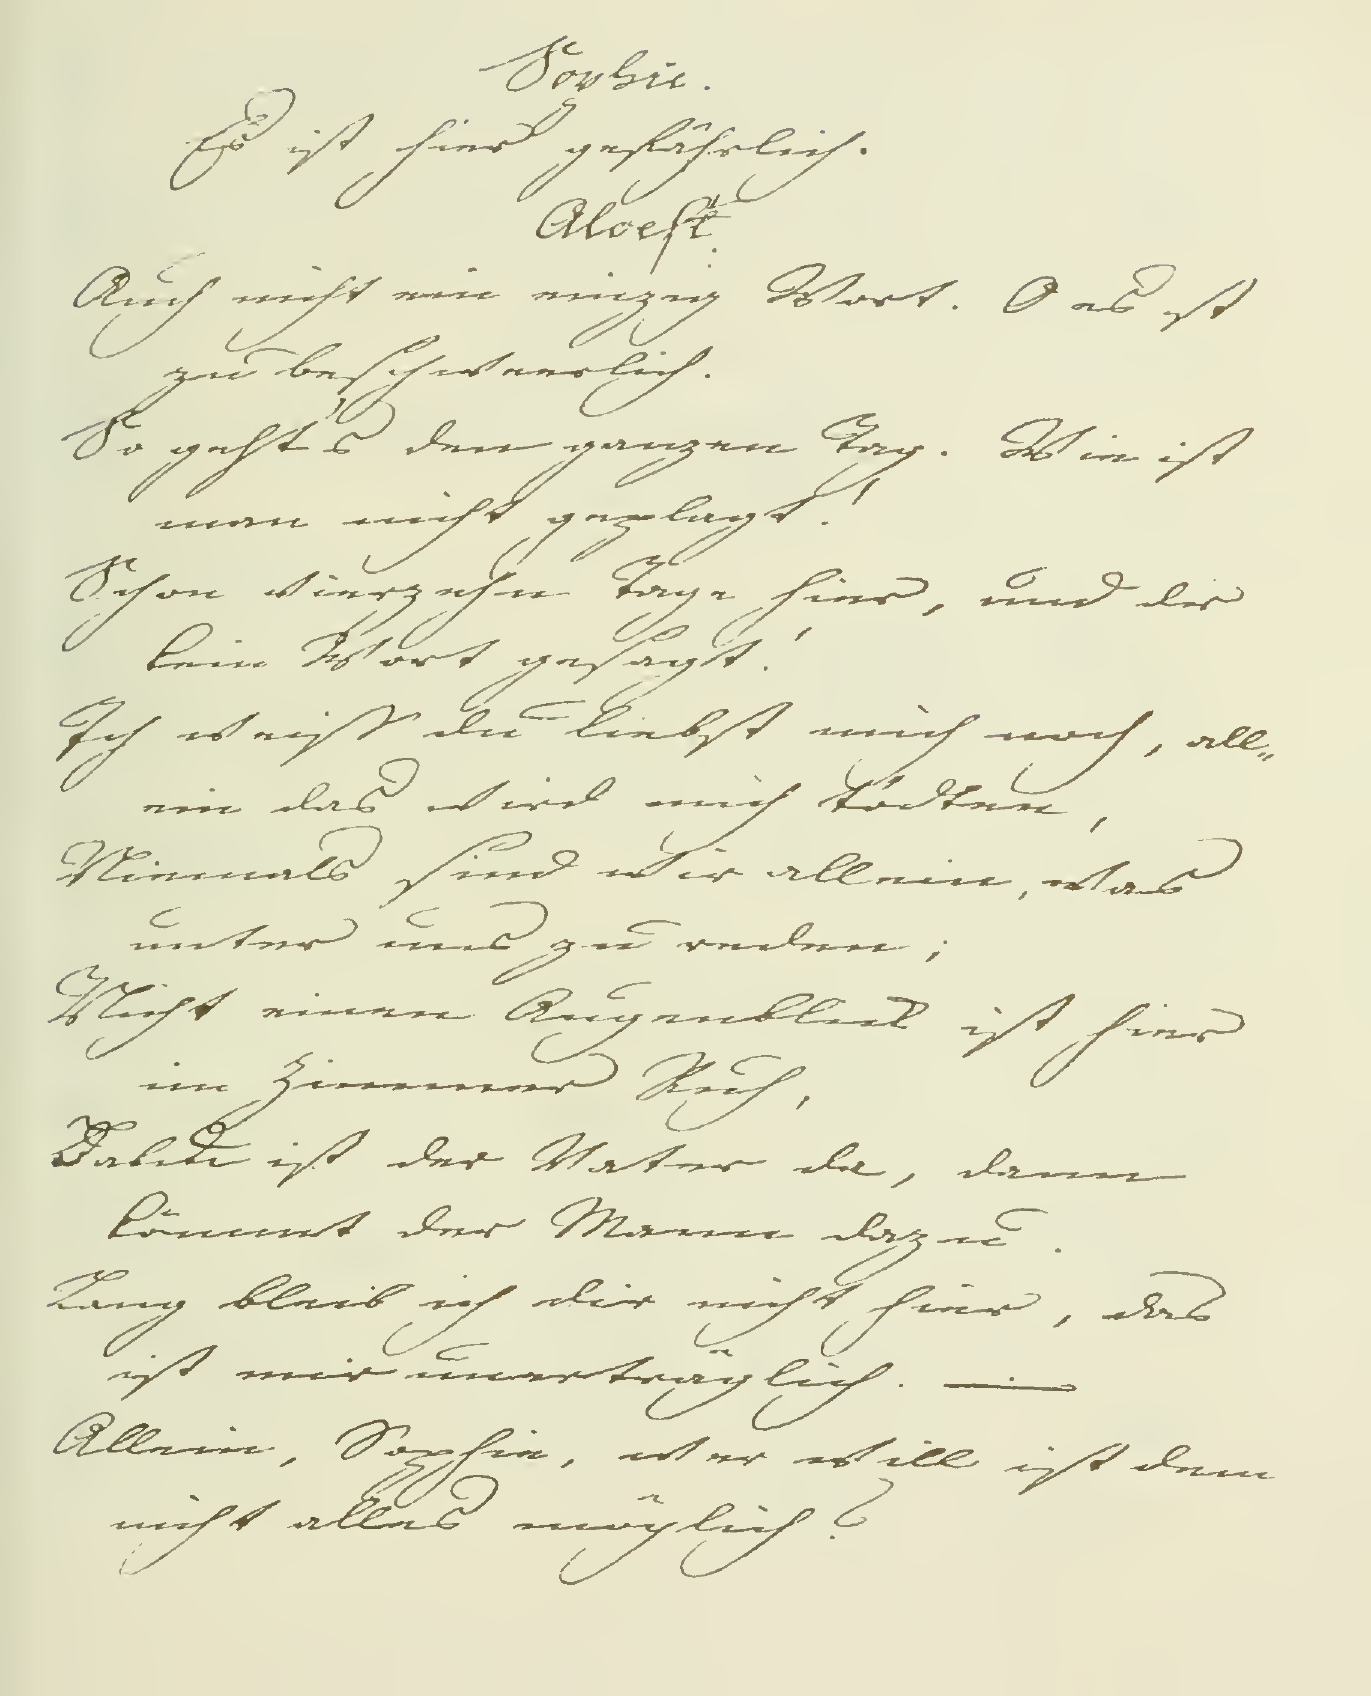 Sophie.
Es ist hier gefährlich.
Alcest.
Auch nicht ein einzig Wort. O es ist
zu beschweerlich.
So geht's den ganzen Tag. Wie ist
man nicht geplagt!
Schon vierzehn Tage hier, und dir
kein Wort gesagt!
Ich weiß du liebst mich noch, all„
ein das wird mich tödten,
Niemals sind wir allein, was
unter uns zu reden;
Nicht einen Augenblick ist hier
im Zimmer Ruh,
Bald ist der Vater da, dann
kömmt der Mann dazu.
Lang bleib ich dir nicht hier, das
ist mir unerträglich. —
Allein, Sophie, wer will ist dem
nicht alles möglich?